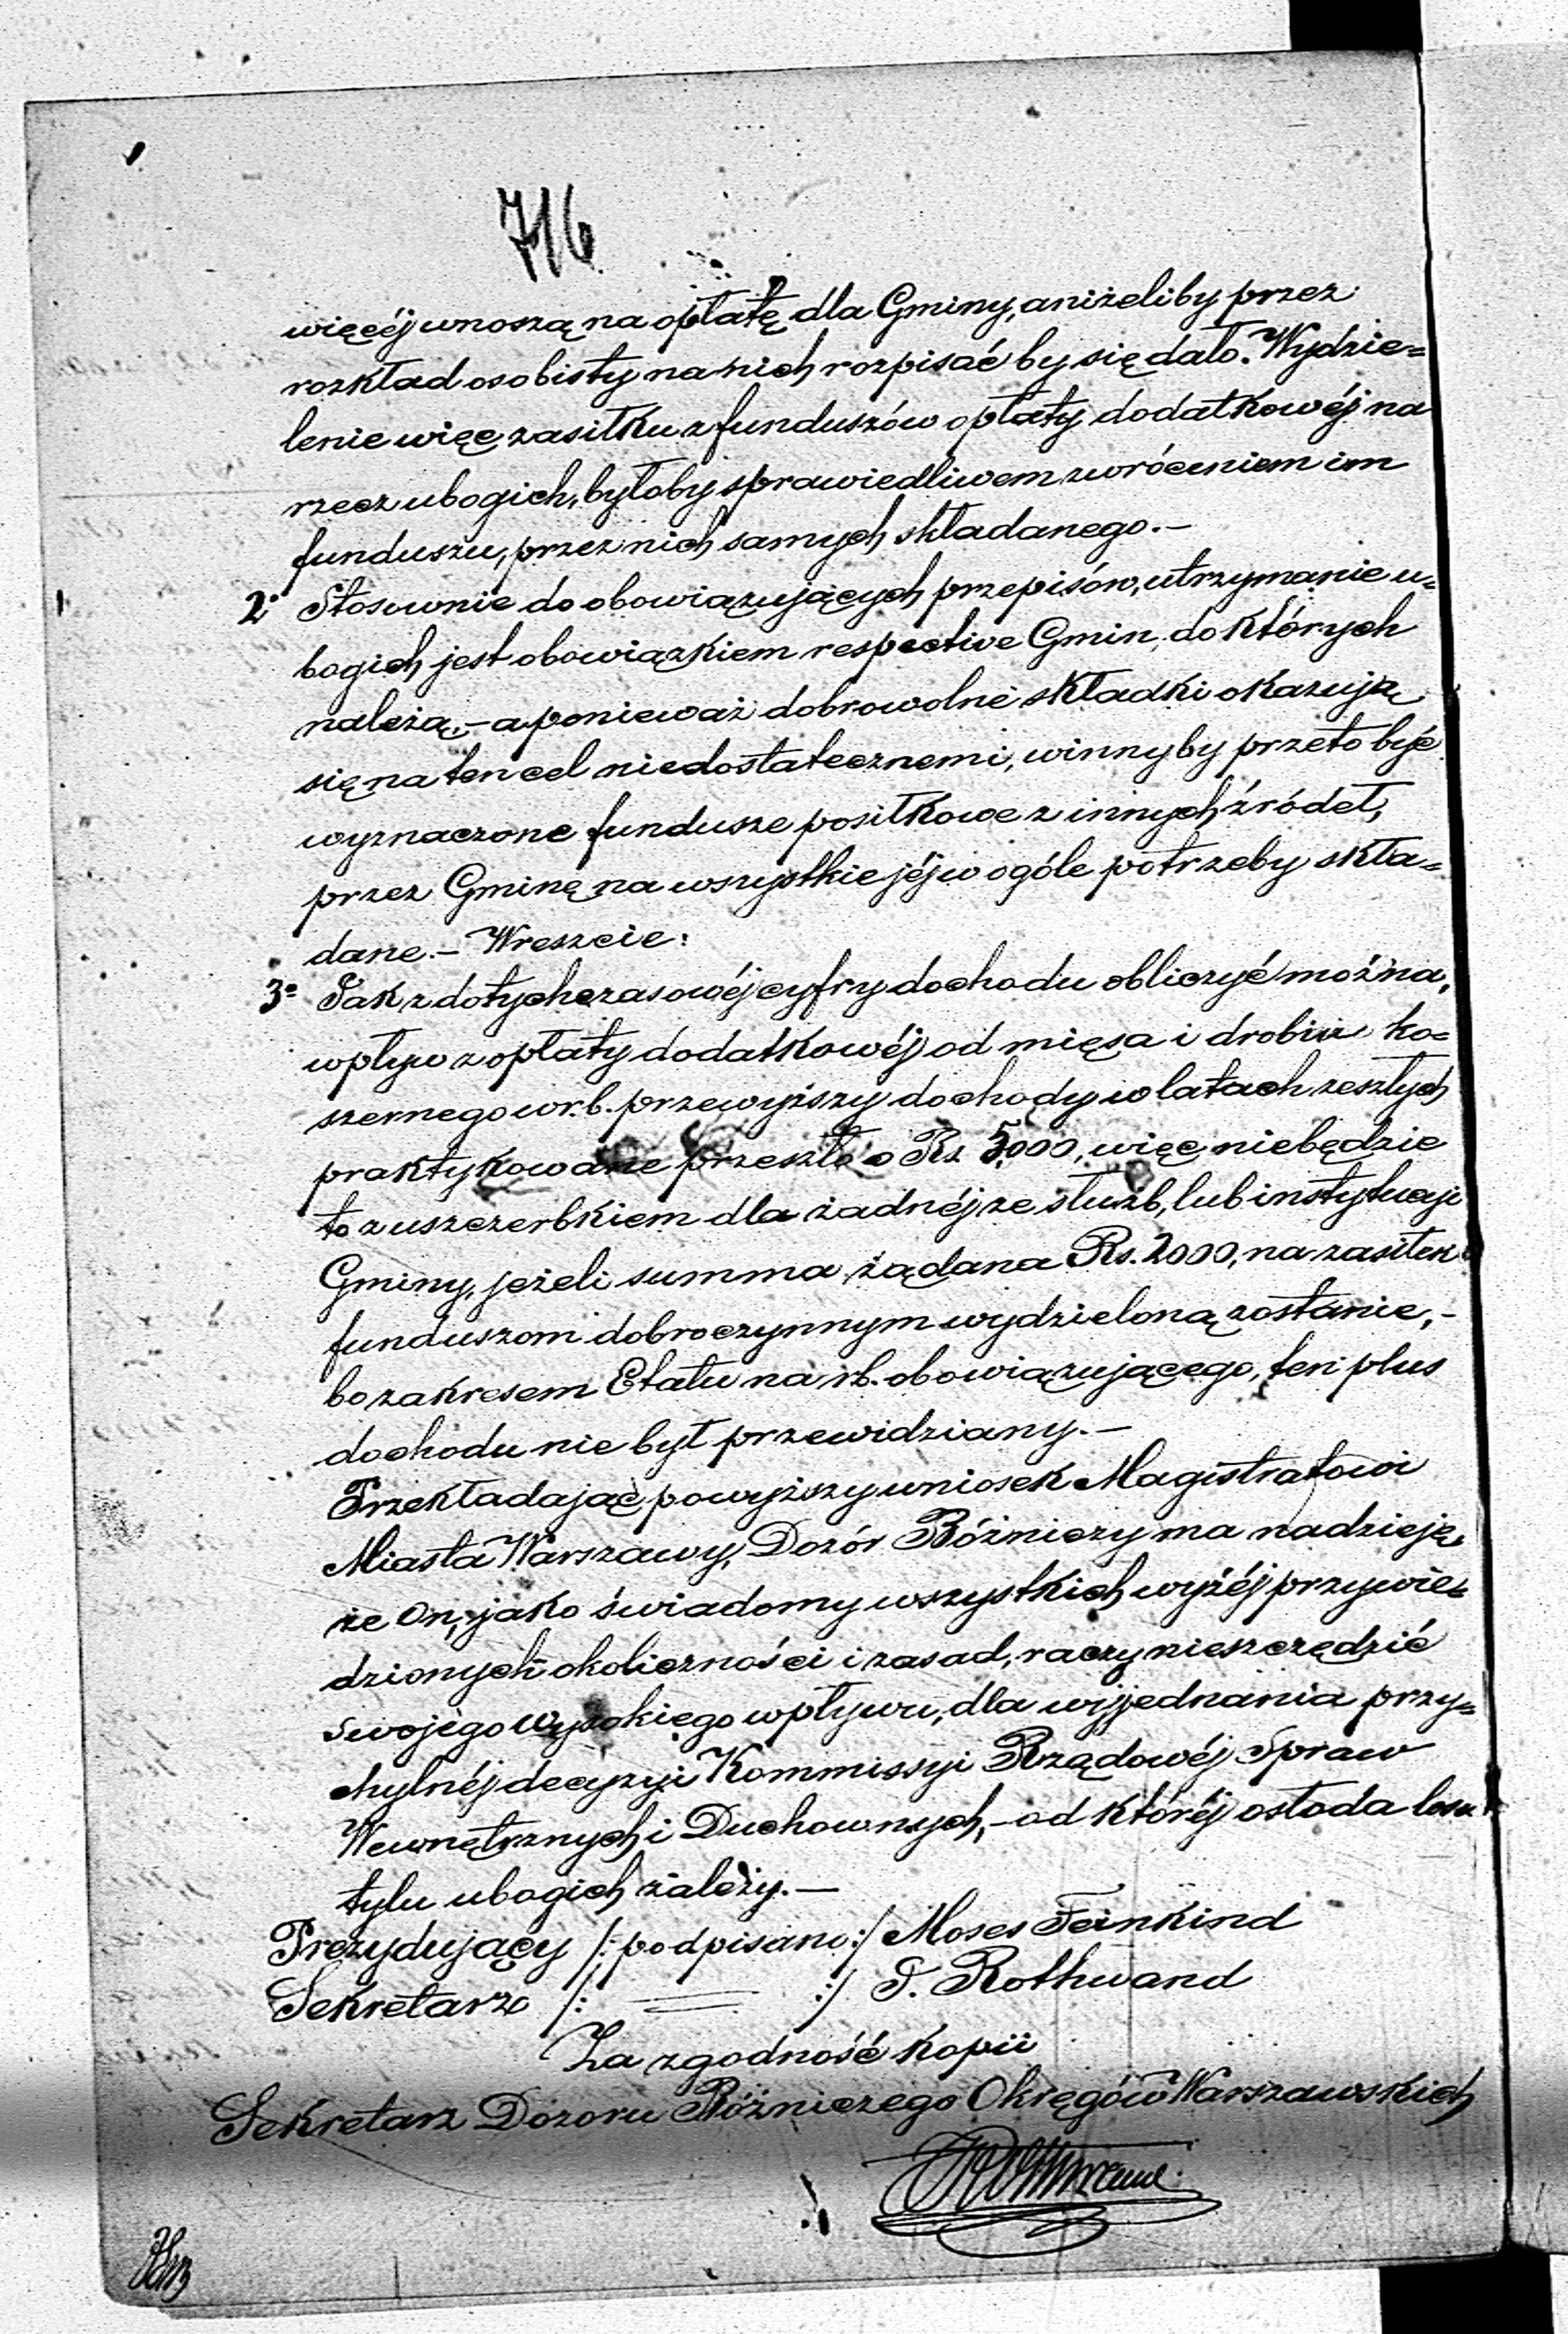 716
więcéj wnoszą na opłatę dla Gminy, aniżeliby przez
rozkład osobisty na nich rozpisać by się dało. Wydzie=
lenie więc zasiłku z funduszów opłaty dodatkowéj na
rzecz ubogich, byłoby sprawiedliwem zwróceniem im
funduszu, przez nich samych składanego.—
2° Stosownie do obowiązujących przepisów, utrzymanie u=
bogich jest obowiązkiem respective Gmin, do których
należą,— a ponieważ dobrowolne składki okazują
się na ten cel niedostatecznemi, winny by przeto być
wyznaczone fundusze posiłkowe z innych źródeł,
przez Gminę na wszystkie jéj w ogóle potrzeby skła=
dane.— Wreszcie:
3° Jak z dotychczasowéj cyfry dochodu obliczyć można,
wpływ z opłaty dodatkowéj od mięsa i drobiu ko=
szernego w r.b. przewyższy dochody w latach zeszłych
praktykowane przeszło o Rs. 5000, więc niebędzie
to z uszczerbkiem dla żadnéj ze służb, lub instytucyi
Gminy, jeżeli summa żądana Rs. 2000, na zasiłek
funduszom dobroczynnym wydzieloną zostanie,—
bo zakresem Etatu na r.b. obowiązującego, ten plus
dochodu nie był przewidziany.—
Przekładając powyższy wniosek Magistratowi
Miasta Warszawy, Dozór Bóżniczy ma nadzieję,
że On, jako świadomy wszystkich wyżéj przywie=
dzionych okoliczności i zasad, raczy nieszczędzić
swojego wysokiego wpływu, dla wyjednania przy=
chylnéj decyzyi Kommissyi Rządowéj Spraw
Wewnętrznych i Duchownych,— od któréj osłoda losu
tylu ubogich zależy.—
Prezydujący /: podpisano :/ Moses Feinkind
Sekretarz /: = :/ J. Rothwand
Za zgodność kopii
Sekretarz Dozoru Bóżniczego Okręgów Warszawskich
JRothwand